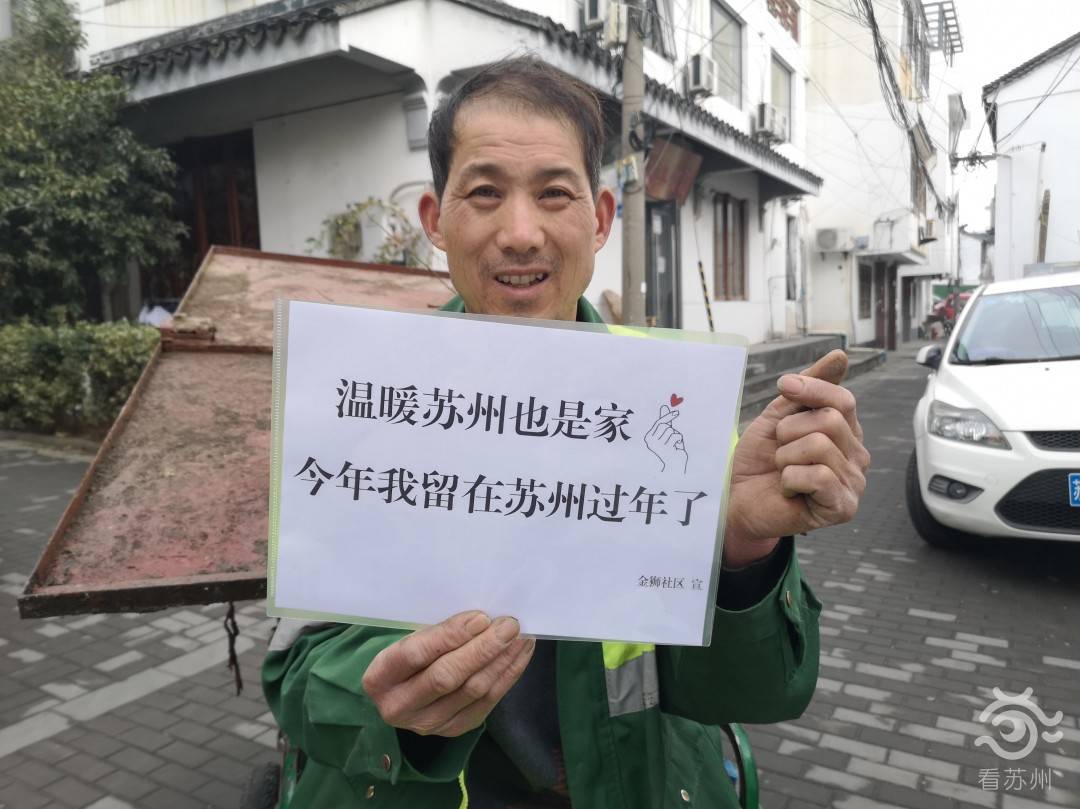 温暖苏州也是家
今年我留在苏州过年了
金狮社区 宣
苏
看苏州